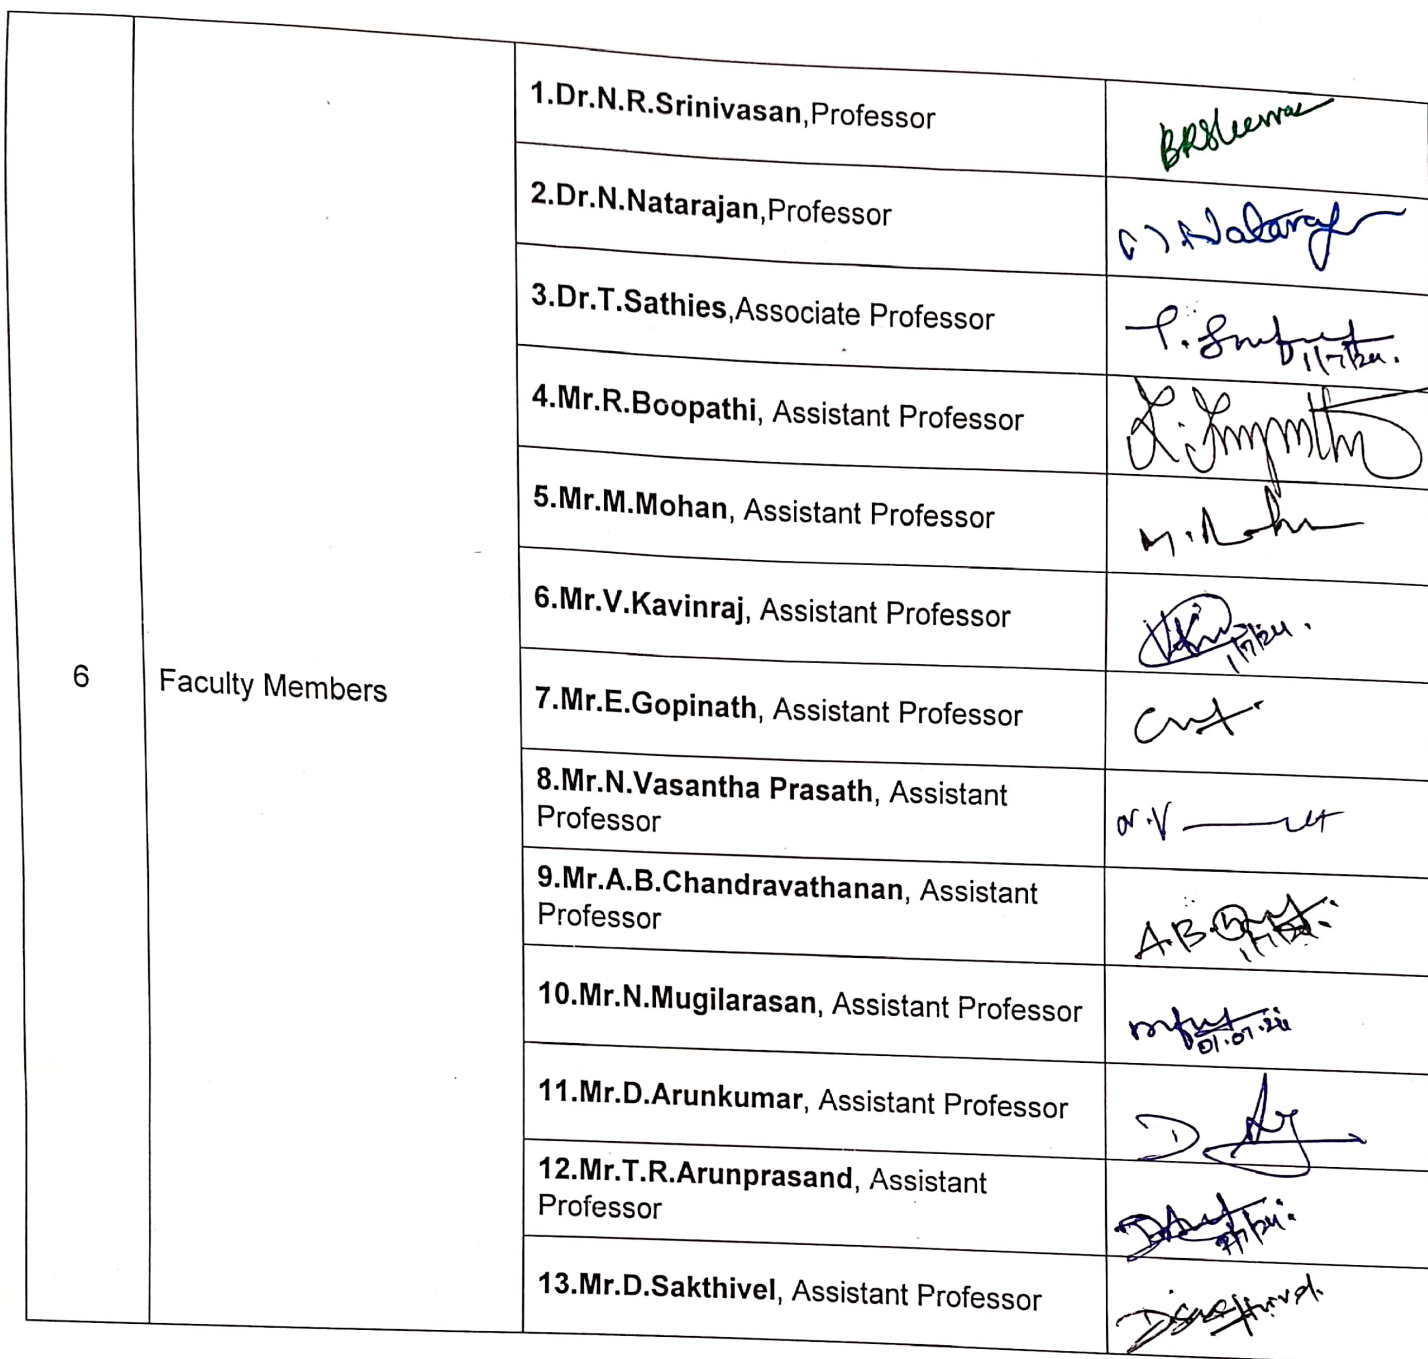 1.Dr.N.R.Srinivasan,Professor
2.Dr.N.Natarajan,Professor
3.Dr.T.Sathies,Associate Professor
1/7/24.
4.Mr.R.Boopathi, Assistant Professor
5.Mr.M.Mohan, Assistant Professor
6.Mr.V.Kavinraj, Assistant Professor
1/7/24.
6
Faculty Members
7.Mr.E.Gopinath, Assistant Professor
8.Mr.N.Vasantha Prasath, Assistant
Professor
9.Mr.A.B.Chandravathanan, Assistant
Professor
A.B.
10.Mr.N.Mugilarasan, Assistant Professor
01.07.24
11.Mr.D.Arunkumar, Assistant Professor
12.Mr.T.R.Arunprasand, Assistant
Professor
13.Mr.D.Sakthivel, Assistant Professor